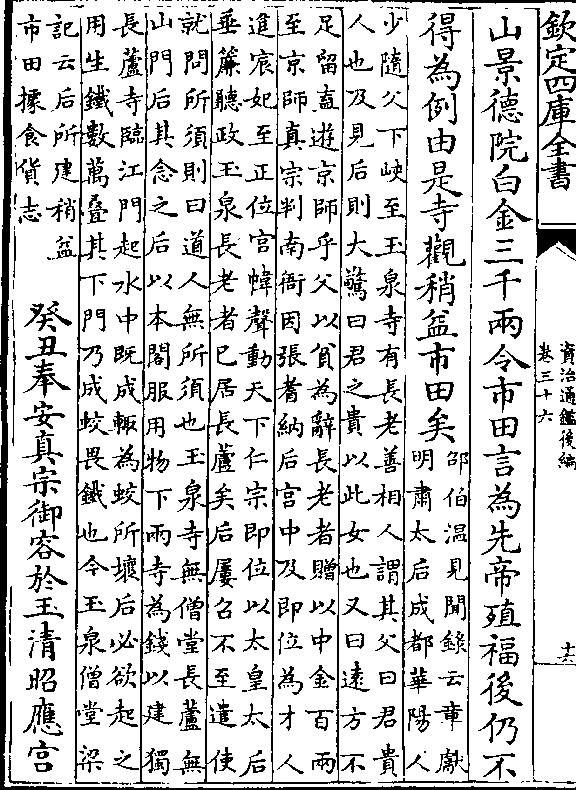 欽定四庫全書
資治通鑑後編
卷三十六
十六
山景德院白金三千兩令市田言為先帝殖福後仍不
得為例由是寺觀稍益市田矣
邵伯溫見聞錄云章獻
明肅太后成都華陽人
少隨父下峽至玉泉寺有長老善相人謂其父曰君貴
人也及見后則大驚曰君之貴以此女也又曰遠方不
足留盍遊京師乎父以貧為辭長老者贈以中金百兩
至京師真宗判南衙因張耆納后宮中及即位為才人
進宸妃至正位宮幃聲動天下仁宗即位以太皇太后
垂簾聽政玉泉長老者已居長蘆矣后屢召不至遣使
就問所須則曰道人無所須也玉泉寺無僧堂長蘆無
山門后其念之后以本閣服用物下兩寺為錢以建獨
長蘆寺臨江門起水中既成輙為蛟所壞后必欲起之
用生鐵數萬疊其下門乃成蛟畏鐵也今玉泉僧堂梁
記云后所建稍益
市田據食貨志
癸丑奉安真宗御容於玉清昭應宮